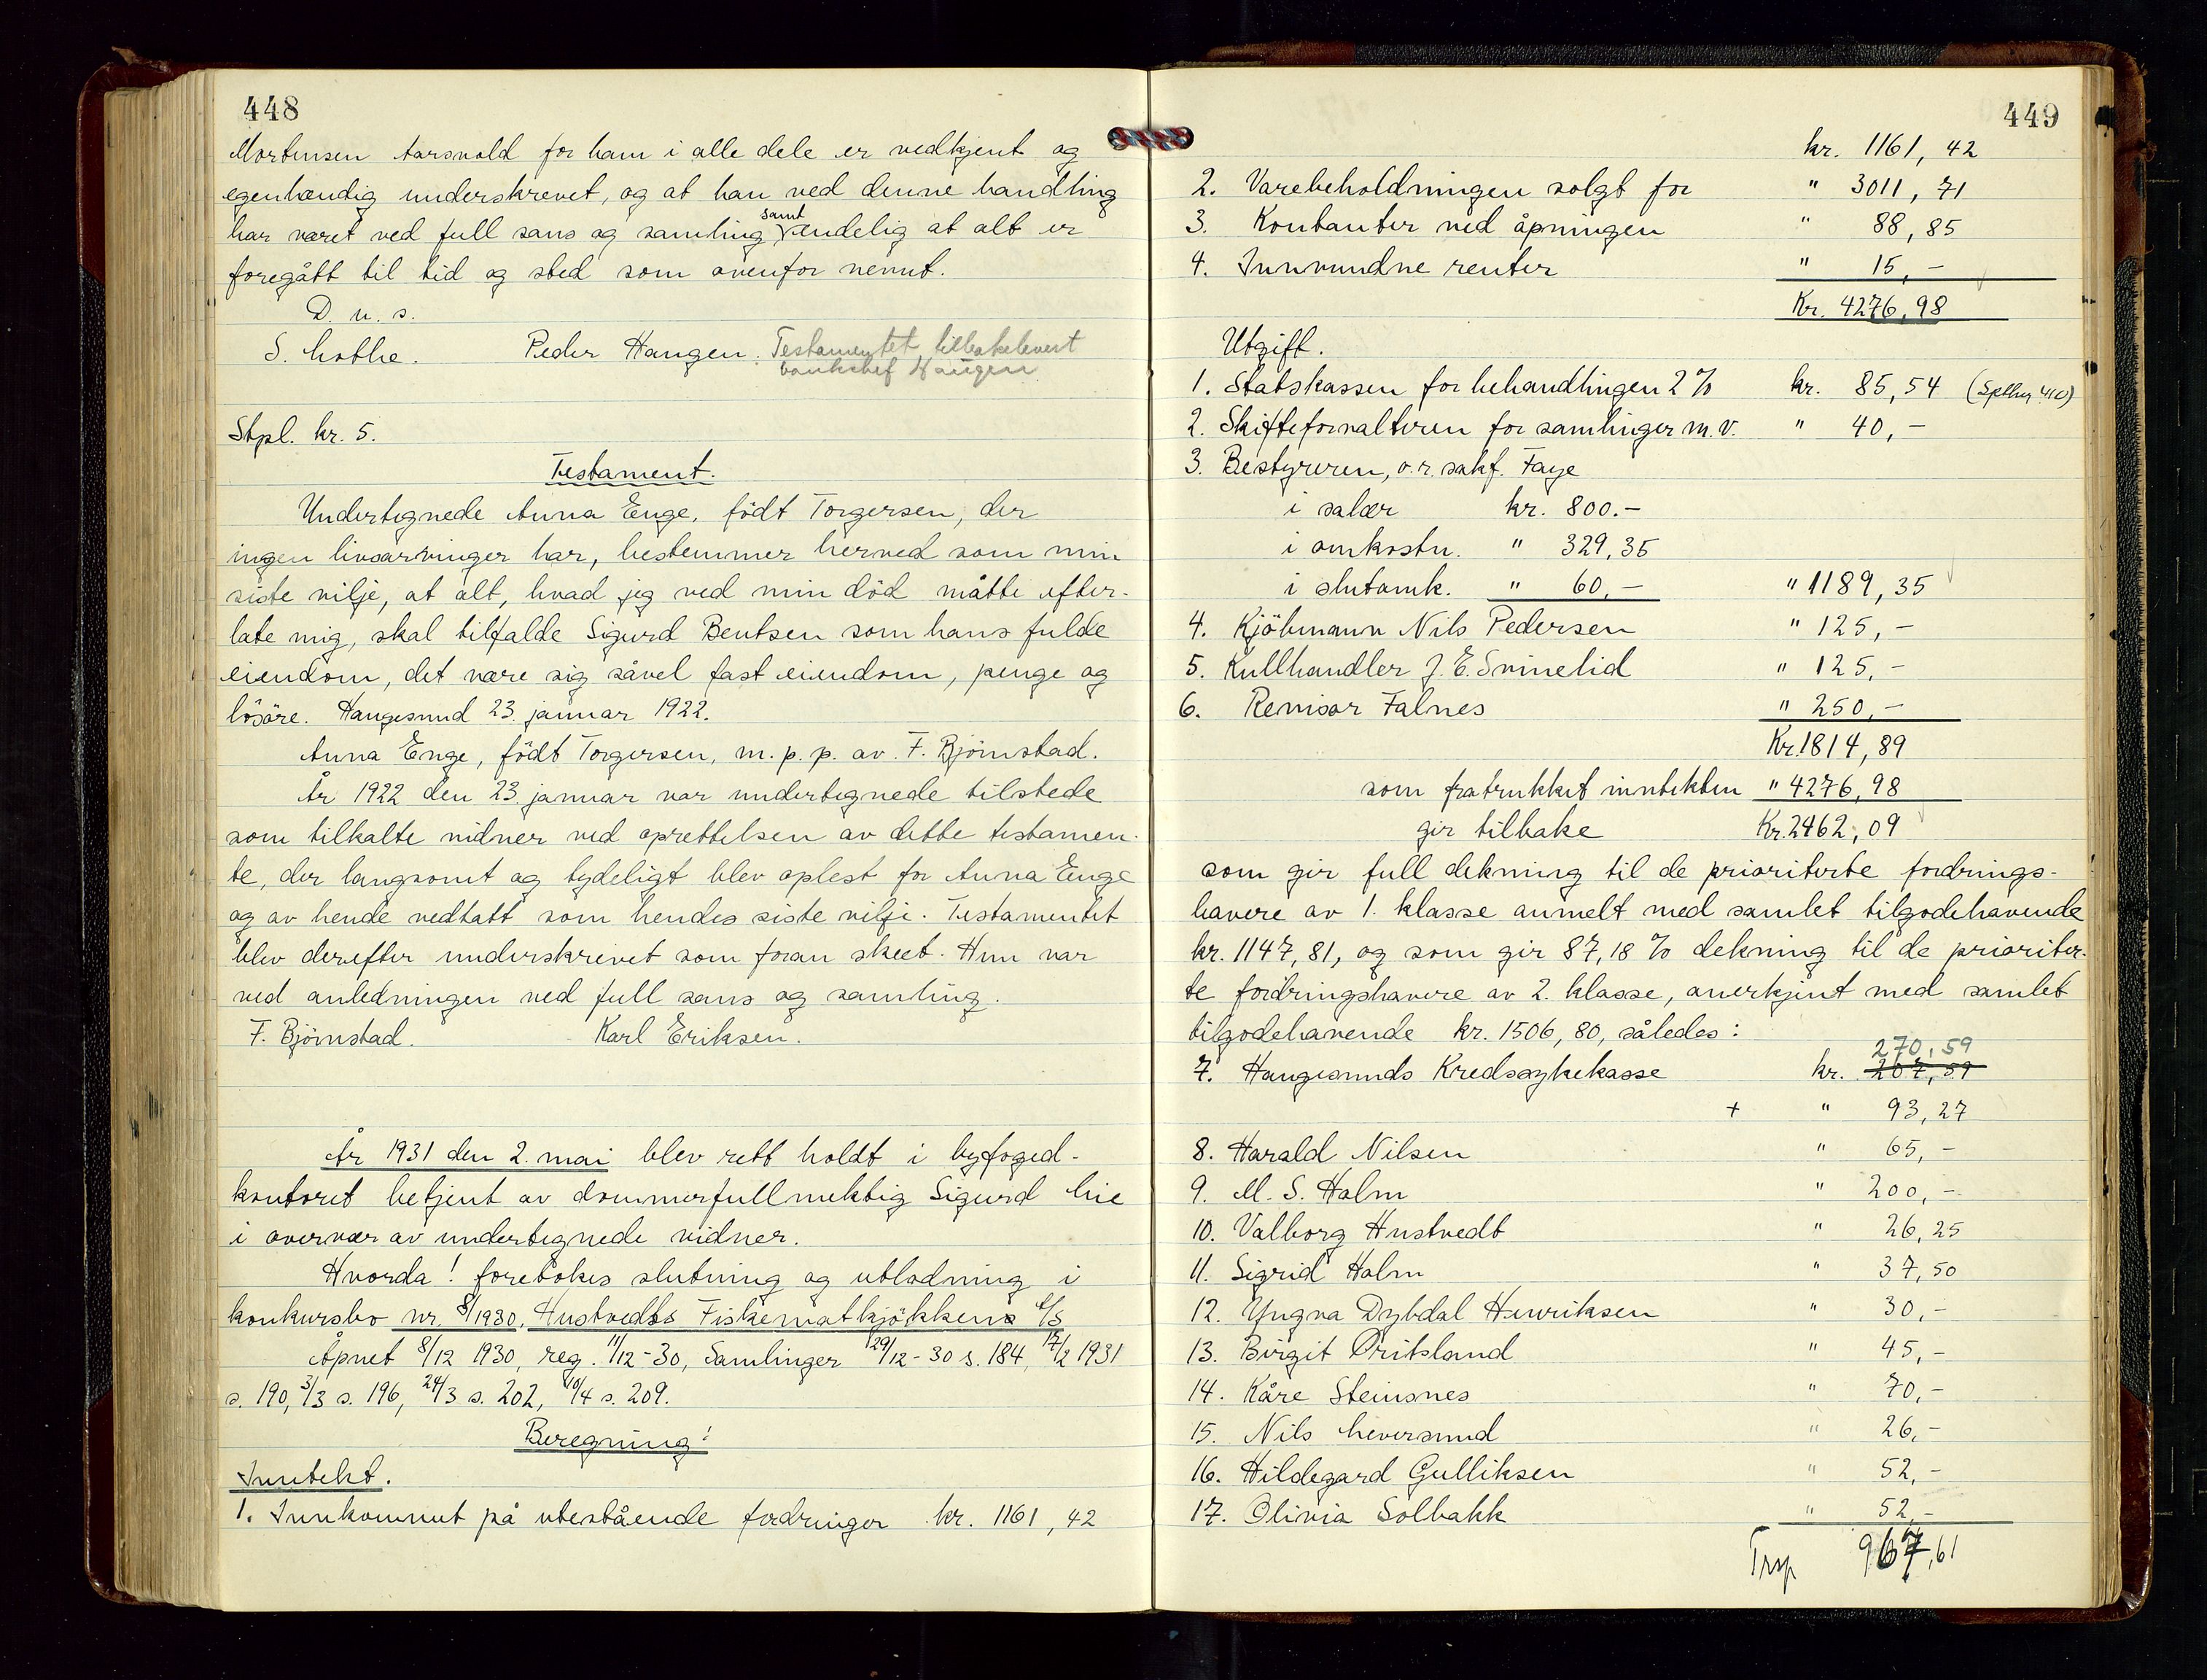 448
Mortensen Aarsvold for ham i alle dele er vedkjent og
egenhændig underskrevet, og at han ved denne handling
har været ved full sans og samling samt endelig at alt er
foregått til tid og sted som ovenfor nevnt.
D. u. s.
S. Lothe. Peder Haugen. Testamentet tilbakelevert
banksjef Haugen
Stpl. kr. 5.
Testament.
Undertegnede Anna Enge, født Torgersen, der
ingen livsarvinger har, bestemmer herved som min
siste vilje, at alt, hvad jeg ved min død måtte efter-
late mig, skal tilfalde Sigurd Bentsen som hans fulde
eiendom, det være sig såvel fast eiendom, penge og
løsøre. Haugesund 23. januar 1922.
Anna Enge, født Torgersen, m. p. p. av F. Bjørnstad.
År 1922 den 23. januar var undertegnede tilstede
som tilkalte vidner ved oprettelsen av dette testamen-
te, der langsomt og tydeligt blev oplest for Anna Enge
og av hende vedtatt som hendes siste vilje. Testamentet
blev derefter underskrevet som foran skeet. Hun var
ved anledningen ved full sans og samling.
F. Bjørnstad. Karl Eriksen.
År 1931 den 2. mai blev rett holdt i byfoged-
kontoret betjent av dommerfullmektig Sigurd Lie
i overvær av undertegnede vidner.
Hvorda! foretokes slutning og utlodning i
konkursbo nr. 8/1930, Hustvedts Fiskematkjøkken A/S
Åpnet 8/12 1930, reg. 11/12-30, Samlinger 29/12-30 s. 184, 17/2 1931
s. 190, 3/3 s. 196, 24/3 s. 202, 10/4 s. 209.
Beregning:
Inntekt.
1. Innkommet på utestående fordringer kr. 1161,42
449
kr. 1161,42
2. Varebeholdningen solgt for " 3011,71
3. Kontanter ved åpningen " 88,85
4. Innvundne renter " 15,-
Kr. 4276,98
Utgift.
1. Statskassen for behandlingen 2% kr. 85,54
2. Skifteforvalteren for samlinger m.v. " 40,-
3. Bestyreren, o.r.sakf. Faye
i salær kr. 800.-
i omkostn. " 329,35
i slutomk. " 60,- " 1189,35
4. Kjøbmann Nils Pedersen " 125,-
5. Kullhandler J. E. Svinelid " 125,-
6. Revisor Falnes " 250,-
Kr. 1814,89
som fratrukket inntekten " 4276,98
gir tilbake Kr. 2462,09
som gir full dekning til de prioriterte fordrings-
havere av 1. klasse anmelt med samlet tilgodehavende
kr. 1147,81, og som gir 87,18 % dekning til de prioriter-
te fordringshavere av 2. klasse, anerkjent med samlet
tilgodehavende kr. 1506,80, således:
270,59
7. Haugesunds Kredssykekasse kr. 207,59
+ " 93,27
8. Harald Nilsen " 65,-
9. M. S. Halm " 200,-
10. Valborg Hustvedt " 26,25
11. Sigrid Halm " 37,50
12. Yngva Dybdal Henriksen " 30,-
13. Birgit Oritsland " 45,-
14. Kåre Steinsnes " 70,-
15. Nils Leversund " 26,-
16. Hildegard Gulliksen " 52,-
17. Olivia Solbakk " 52,-
Trsp 967,61